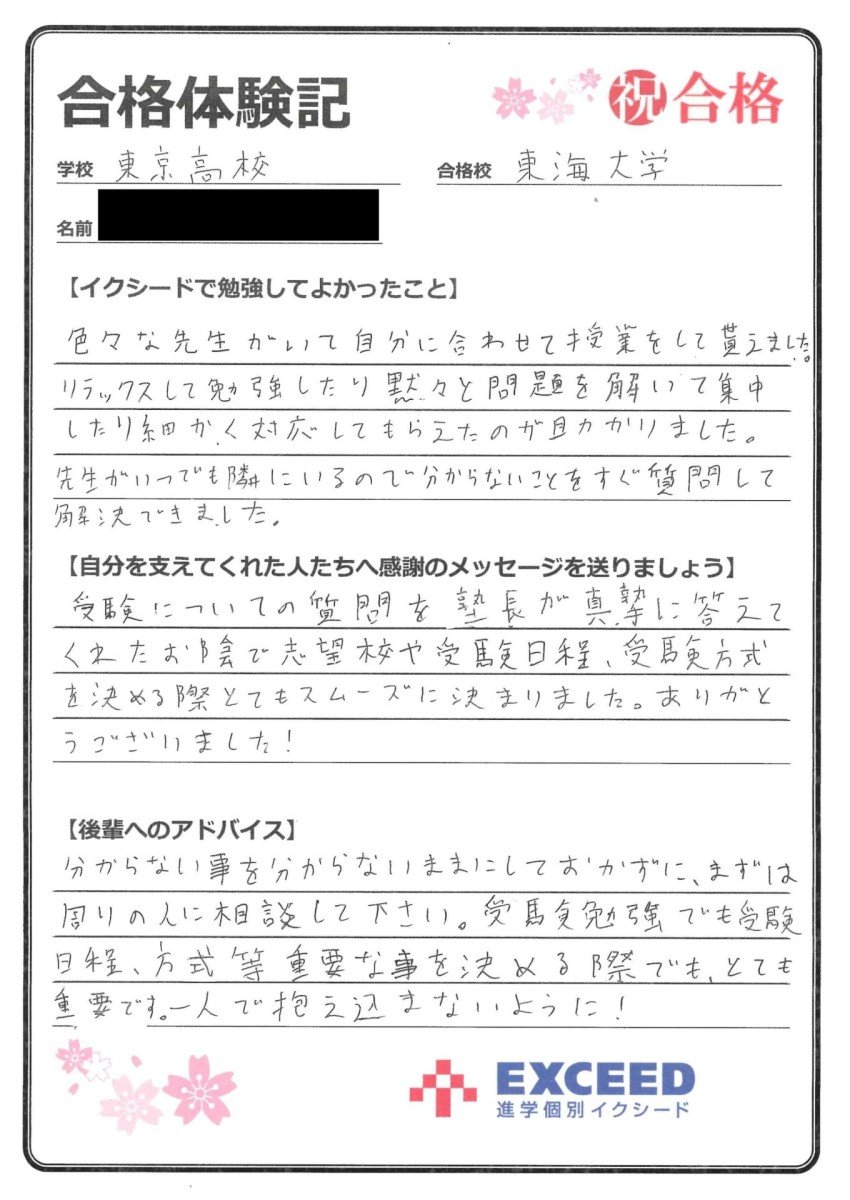 合格体験記
祝 合格
学校 東京高校
合格校 東海大学
名前
【イクシードで勉強してよかったこと】
色々な先生がいて自分に合わせて授業をして貰えました。
リラックスして勉強したり黙々と問題を解いて集中
したり細かく対応してもらえたのが助かりました。
先生がいつでも隣にいるので分からないことをすぐ質問して
解決できました。
【自分を支えてくれた人たちへ感謝のメッセージを送りましょう】
受験についての質問を塾長が真摯に答えて
くれたお陰で志望校や受験日程、受験方式
を決める際とてもスムーズに決まりました。ありがと
うございました！
【後輩へのアドバイス】
分からない事を分からないままにしておかずに、まずは
周りの人に相談して下さい。受験勉強でも受験
日程、方式等重要な事を決める際でも、とても
重要です。一人で抱え込まないように！
EXCEED
進学個別イクシード